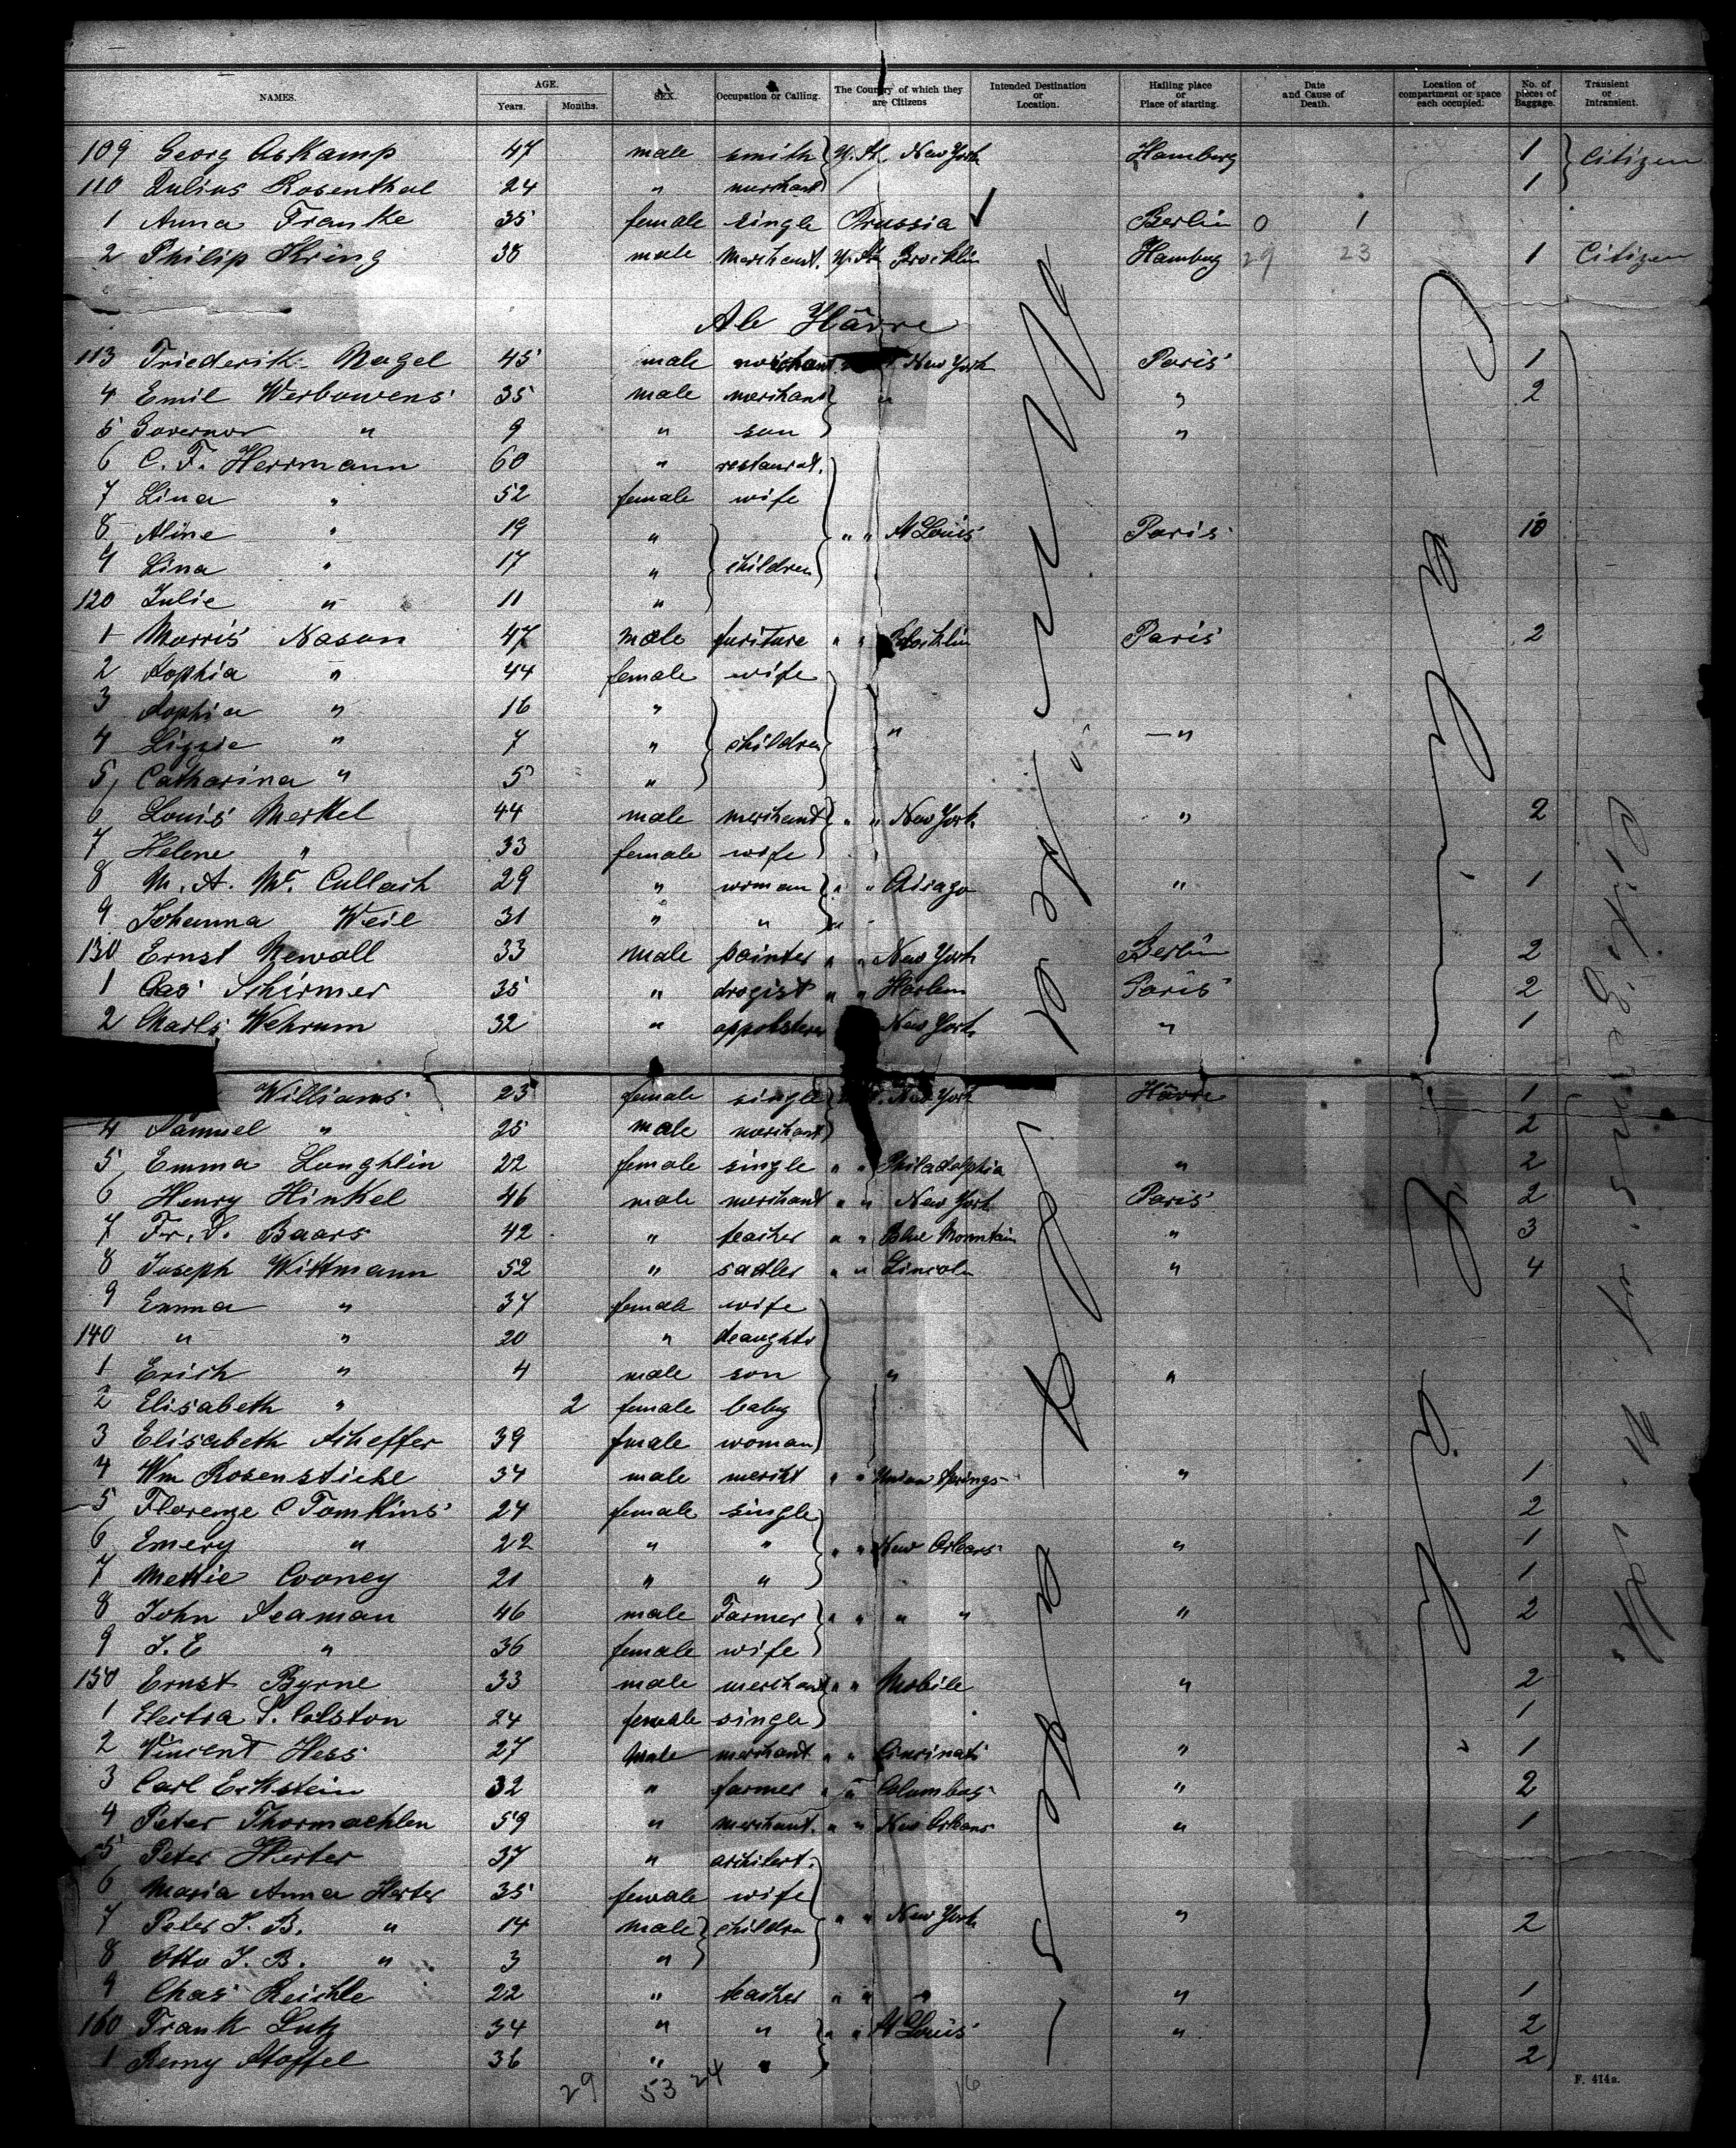 NAMES. AGE. Years. Months. SEX. Occupation or Calling. The Country of which they are Citizens Intended Destination or Location. Hailing place or Place of starting. Date and Cause of Death. Location of compartment or space each occupied. No. of pieces of Baggage. Transient or Intransient.
109 Georg Askamp 47 male smith U. St. New York Hamburg 1 Citizen
110 Julius Rosenthal 24 " merchant 1
1 Anna Franke 35 female single Prussia Berlin 0 1
2 Philip Kring 38 male merchant. U. St. Brocklin Hamburg 29 23 1 Citizen
Ab Hâvre
113 Friederik Nagel 45 male merchant New York Paris 1
4 Emil Werbowens 35 male merchant " " 2
5 Governor " 9 " son "
6 C. F. Herrmann 60 " restaurat.
7 Lina " 52 female wife
8 Aline " 19 " " " St Louis Paris 10
9 Lina " 17 " children
120 Julie " 11 "
1 Morris Nason 47 male furiture " " Brocklin Paris 2
2 Sophia " 44 female wife
3 Sophia " 16 "
4 Lizzie " 7 " children " "
5 Catharina " 5 "
6 Louis Merkel 44 male merchant " " New York " 2
7 Helene " 33 female wife
8 M. A. Mc. Cullach 29 " woman " " Chicago " 1
9 Johanna Weil 31 " "
130 Ernst Newall 33 male painter " " New York Berlin 2
1 Chas Schirmer 35 " drogist " " Harlem Paris 2
2 Charls Wehrum 32 " oppolsterer New York " 1
Williams 23 female single New York Hâvre 1
4 Samuel " 25 male merchant 2
5 Emma Loughlin 22 female single " " Philadelphia " 2
6 Henry Hinkel 46 male merchant " " New York Paris 2
7 Fr. S. Baars 42 " teacher " " Blue Mountain " 3
8 Joseph Wittmann 52 " sadler " " Lincoln " 4
9 Emma " 37 female wife
140 " " 20 " deaughtr
1 Erich " 4 male son " "
2 Elisabeth " 2 female baby
3 Elisabeth Scheffer 39 female woman
4 Wm Rosenstiehl 34 male mercht " " Union Springs " 1
5 Florenze C Tomkins 24 female single 2
6 Emery " 22 " " " " New Orleans " 1
7 Mettie Cooney 21 " " 1
8 John Seaman 46 male Farmer " " " " " 2
9 J. E " 36 female wife
150 Ernst Byrne 33 male merchant " " Mobile " 2
1 Electra S. Colston 24 female single 1
2 Vincent Hess 27 male merchant " " Cincinati " 1
3 Carl Eckstein 32 " farmer " " Columbus " 2
4 Peter Thormaehlen 59 " merchant. " " New Orleans " 1
5 Peter Herter 37 " architect.
6 Maria Anna Herter 35 female wife
7 Peter J. B. " 14 male children " " New York " 2
8 Otto J. B. " 3 "
9 Chas Reichle 22 " teacher " " " " 1
160 Frank Lutz 34 " " " " St Louis " 2
1 Remy Stoffel 36 " " 2
29 53 24 16
F. 414a.